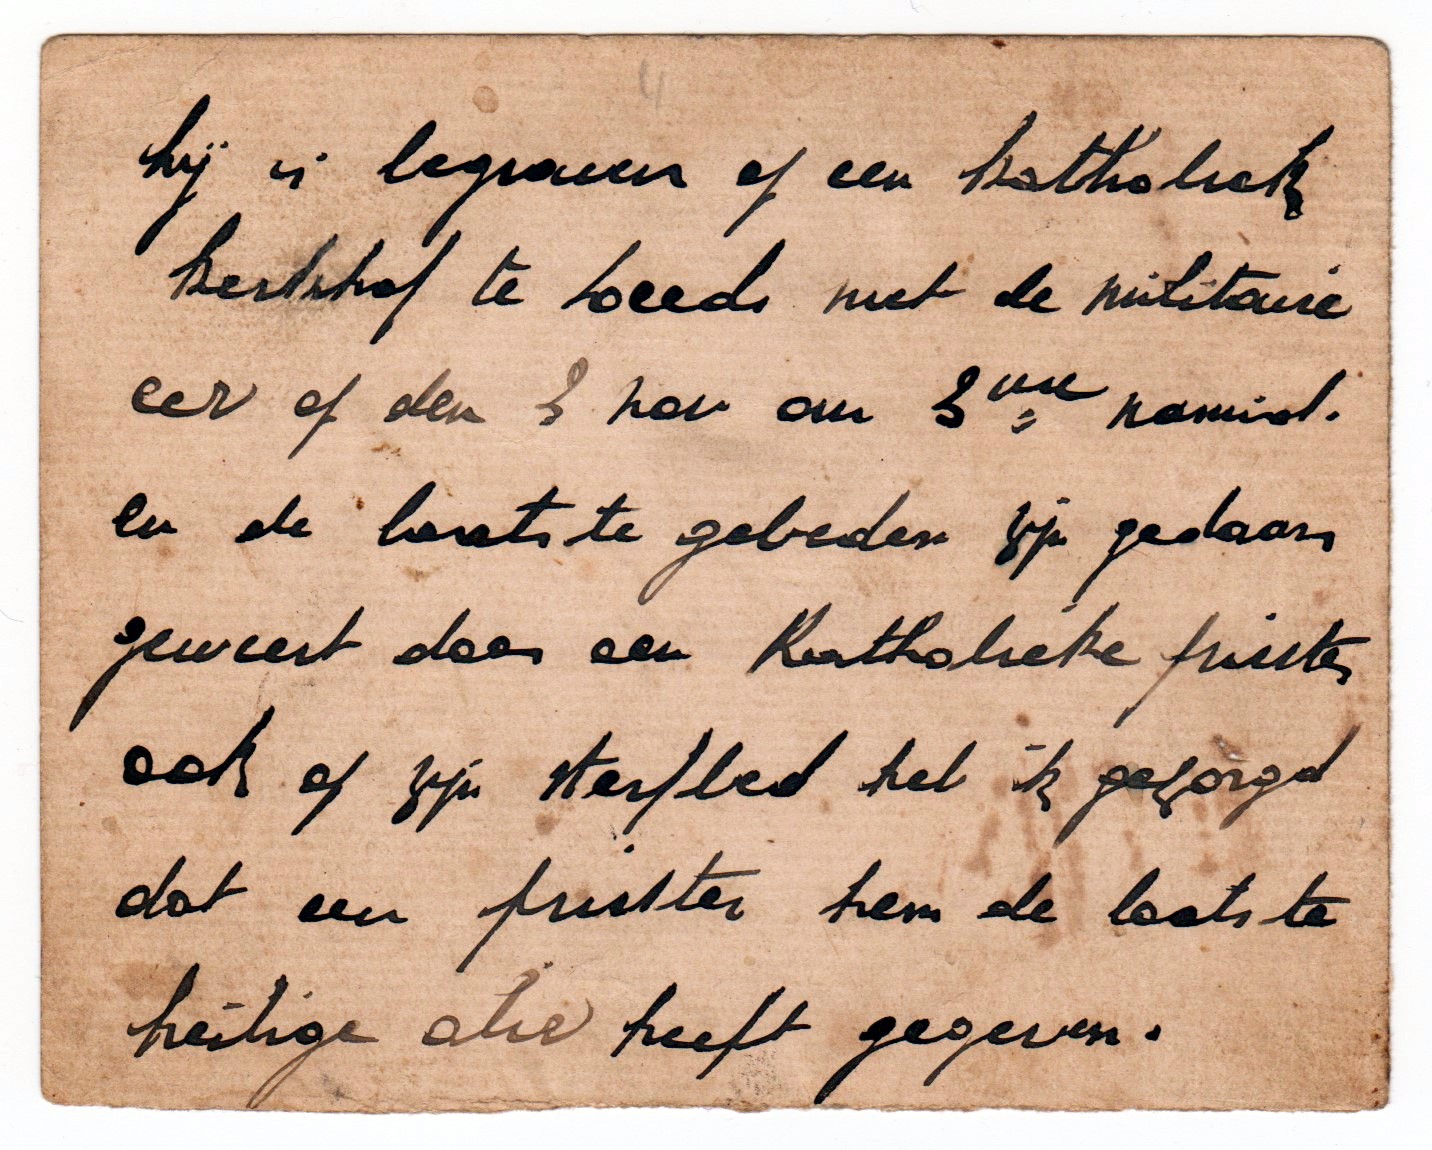 hij is begraven op een Katholiek
kerkhof te Leeds met de militaire
eer op den 3 nov om 3 ure namid.
en de laatste gebeden zijn gedaan
geweest door een Katholieke priister
ook op zijn sterfbed heb ik gezorgd
dat een priister hem de laatste
heilige olie heeft gegeven.